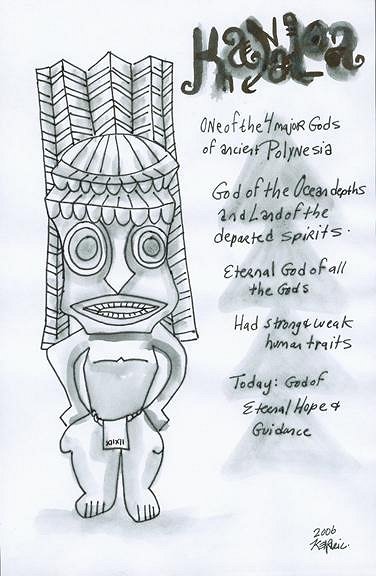 One of the 4 major Gods
of ancient Polynesia
God of the Ocean depths
and Land of the
departed spirits.
Eternal God of all
the Gods
Had strong & weak
human traits
Today: God of
Eternal Hope &
Guidance
2006